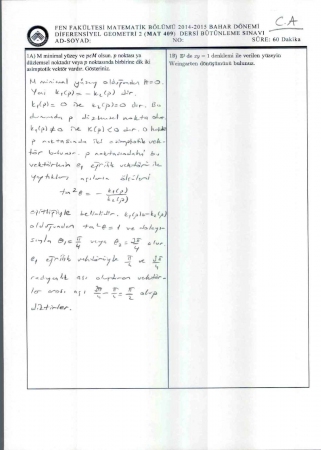 C.A
FEN FAKÜLTESİ MATEMATİK BÖLÜMÜ 2014-2015 BAHAR DÖNEMİ
DİFERENSİYEL GEOMETRİ 2 (MAT 409) DERSİ BÜTÜNLEME SINAVI
AD-SOYAD: NO: SÜRE: 60 Dakika
1A) M minimal yüzey ve p∈M olsun. p noktası ya
düzlemsel noktadır veya p noktasında birbirine dik iki
asimptotik vektör vardır. Gösteriniz.
M minimal yüzey olduğundan H=0.
Yani k₁(p) = -k₂(p) dir.
k₁(p)=0 ise k₂(p)=0 dır. Bu
durumda p düzlemsel nokta olur.
k₁(p)≠0 ise K(p)<0 dır. O halde
p noktasında iki asimptotik vek-
tör bulunur. p noktasındaki bu
vektörlerin e₁ eğrilik vektörü ile
yaptıkları açıların ölçüleri
tan²θ = - k₁(p)/k₂(p)
eşitliğiyle bellidir. k₁(p)=-k₂(p)
olduğundan tan²θ=1 ve dolayı-
sıyla θ₁=π/4 veya θ₂=3π/4 olur.
e₁ eğrilik vektörüyle π/4 ve 3π/4
radyanlık açı oluşturan vektör-
ler arası açı 3π/4 - π/4 = π/2 olup
diktirler.
1B) E³ de xy = 1 denklemi ile verilen yüzeyin
Weingarten dönüşümünü bulunuz.